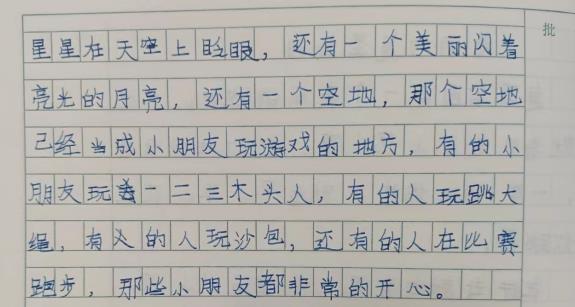 批
星星在天空上眨眼，还有一个美丽闪着
亮光的月亮，还有一个空地，那个空地
己经当成小朋友玩游戏的地方，有的小
朋友玩着一二三木头人，有的人玩跳大
绳，有的人玩沙包，还有的人在比赛
跑步，那些小朋友都非常的开心。